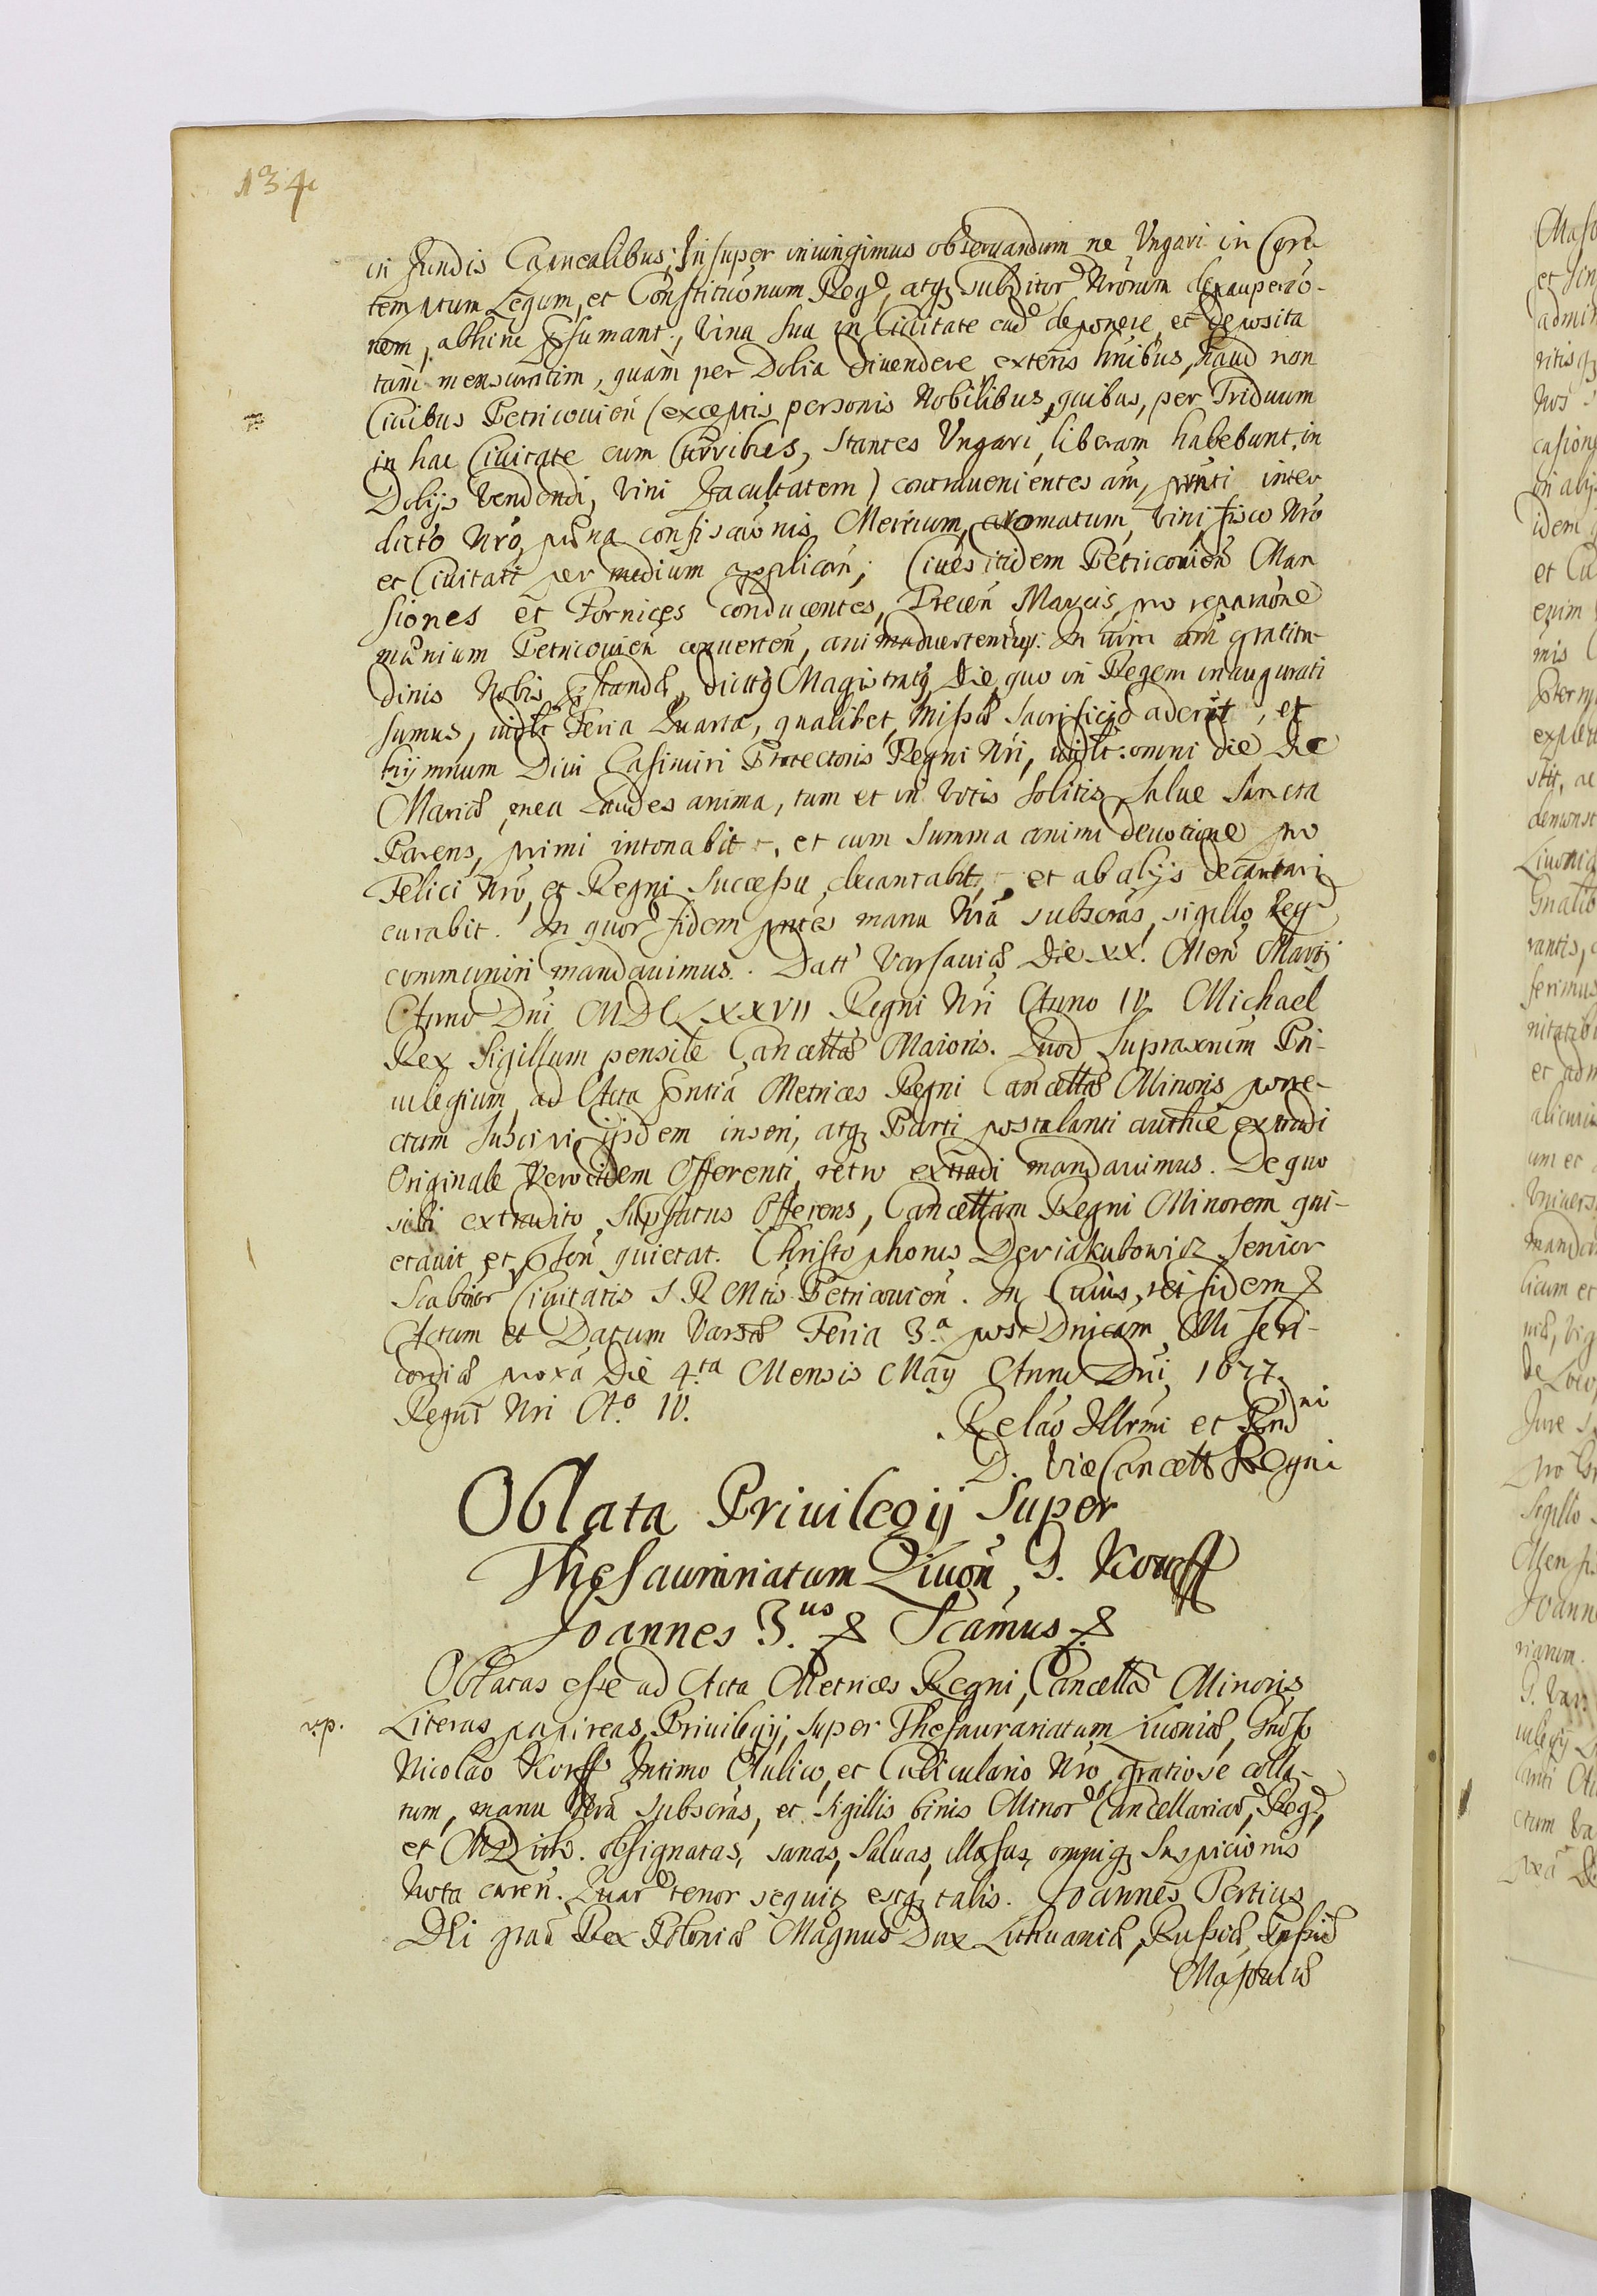 134
in fundis Capnealibus; Insuper iniungimus obseruandum ne Vngari in Con-
temptum Legum, et Constituõnum Regd, atq3 subditord Nrõrum depauperaõ-
nem, abhinc Psumant, Vina sua in Ciuitate eado deponere, et deposita
tam mensuratim, quàm per Dolia diuendere exteris hninibus, haud non
Ciuibus Petricouien̄ (exceptis personis Nobilibus, quibus, per Triduum
in hac Ciuitate cum Curribus, stantes Vngari, liberam habebunt, in
Dolijs Vendendi, Vini Facultatem) contrauenientes aũ, pñti inter
dicto Nrõ, pæna confiscaõnis Mercium, aromatum, Vini fisco Nrõ
et Ciuitati per medium applicañ; Ciues itidem Petricouien̄ Man
siones et Fornices conducentes, Trecen̄ Marcis pro reparaõne
mænium Petricouien̄ conuerten̄, animaduertentur. In uim aũ gratitu-
dinis Nobis Pstandæ, dictq Magistratq, die quo in Regem inaugurati
sumus, uidlt Feria Quarta, qualibet, Missæ Sacrificijo aderit, et
hymnum Diui Casimiri Protectoris Regni Nri, uidlt: omni die Dic
Mariæ mea Laudes anima, tum et in Votis solitis, Salue Sancta
Parens, primi intonabit, et cum summa animi deuotione pro
Felici Nrõ, et Regni Successu, decantabit, et ab alijs decantari
curabit. In quord fidem pñtes manu Nrã subscrãs, sigillo Reg
communiri mandauimus. Datt Varsauiæ Die XX. Men Martij
Anno Dni MDCLXXVII Regni Nri Anno IV. Michael
Rex Sigillum pensile Cancellæ Maioris. Quod supraxñum Pri-
uilegium, ad Acta pñtia Metrices Regni Cancellæ Minoris porre-
ctum suscipi, ijsdem inseri, atq3 Parti postulanti authcè extradi
Originale Vero eidem Offerenti, retro extradi mandauimus. De quo
sibi extradito, supstatus Offerens, Cancellam Regni Minorem qui-
etauit et Psen̄ quietat. Christophorus Deriakubowicz, Senior
Scabinor Ciuitatis S R Mtis Petricouien̄. In Cuius rei fidem &
Actum et Datum Varsæ Feria 3.a post Dnicam Miseri-
cordiæ proxa Die 4.ta Mensis Maij Anno Dni 1677.
Regni Nri Ao IV.
Relaõ Illrmi et Rndni
D. ViceCancell Regni
Oblata Priuilegij Super
Thesaurariatum Liuoñ, G. Korff
Joannes 3.us & Scamus &
Oblatas esse ad Acta Metrices Regni, Cancellæ Minoris
rp. Literas papireas, Priuilegij, super Thesaurariatum Liuoniæ, Gnoso
Nicolao Korff Intimo Aulico, et Cubiculario Nrõ, gratiosè colla-
tum, manu Nrã subscrãs, et sigillis binis Minord Cancellariard, Regd,
et MDLith. obsignatas, sanas, saluas, illæsas, omniq3 suspicionis
Nota careñ. Quard tenor sequitz estq3 talis. Joannes Tertius
DEi grãa Rex Poloniæ Magnus Dux Lithuaniæ, Russiæ, Prussiæ
Masouiæ